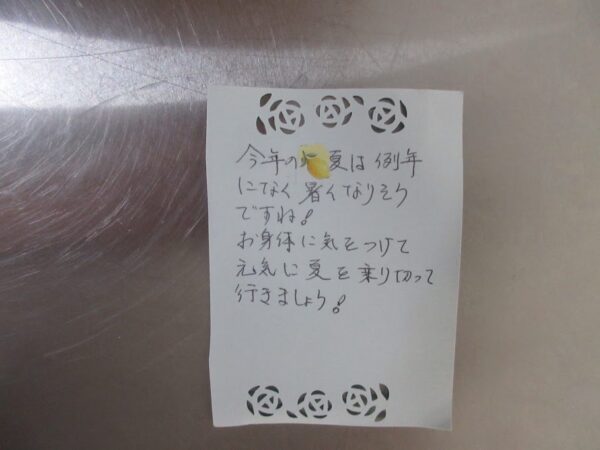 今年の夏は例年
になく暑くなりそう
ですね!
お身体に気をつけて
元気に夏を乗り切って
行きましょう!